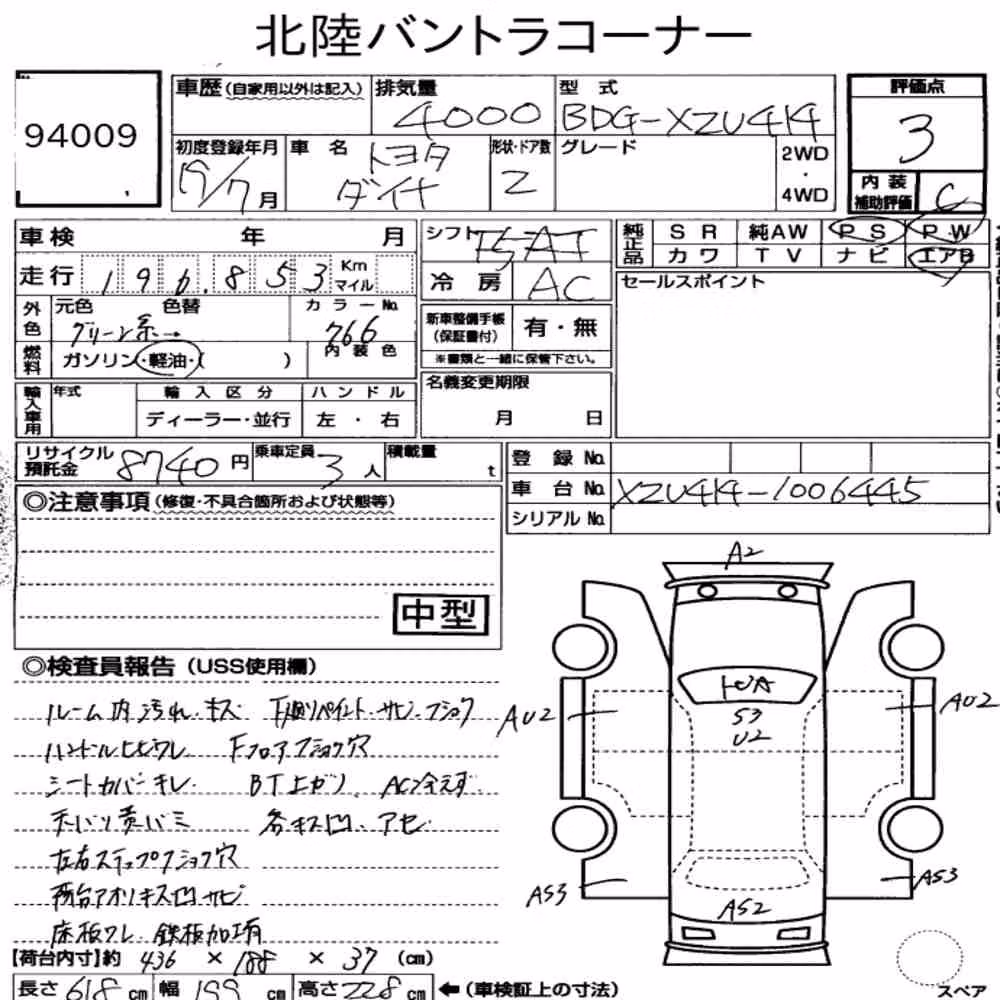 北陸バントラコーナー
94009
車歴 (自家用以外は記入)
排気量
4000
型 式
BDG-XZU414
評価点
3
初度登録年月
19/7月
車 名
トヨタ
ダイナ
形状・ドア数
2
グレード
2WD
・
4WD
内 装
補助評価
C
車検 年 月
シフト
F5AT
純正品
S R 純AW P S P W
カ ワ T V ナ ビ エアB
走行 196.853 Km マイル
冷 房 AC
セールスポイント
外色
元色 色替
グリーン系→
カ ラ ー No.
766
新車整備手帳
(保証書付)
有・無
※書類と一緒に保管下さい。
燃料
ガソリン・軽油・( )
内 装 色
輸入車用
年式
輸 入 区 分
ハ ン ド ル
ディーラー・並行
左 ・ 右
名義変更期限
月 日
リサイクル
預託金
8740円
乗車定員
3人
積載量
t
登 録 No.
車 台 No. XZU414-1006445
シリアル No.
◎注意事項(修復・不具合箇所および状態等)
中型
◎検査員報告(USS使用欄)
ルーム内汚れ.キズ 下廻りペイント.サビ.フショク
ハンドルヒビワレ Fフロアフショク穴
シートカバーキレ. BT上がり. AC冷えず.
天バリ黄バミ 各キズ凹.アセ.
左右ステップフショク穴
荷台アオリキズ凹.サビ
床板ワレ.鉄板加工有
【荷台内寸】約 436 × 188 × 37 (cm)
長さ 618 cm 幅 199 cm 高さ 228 cm ←(車検証上の寸法)
A2
S3
U2
AU2
AU2
AS3
AS3
AS2
スペア